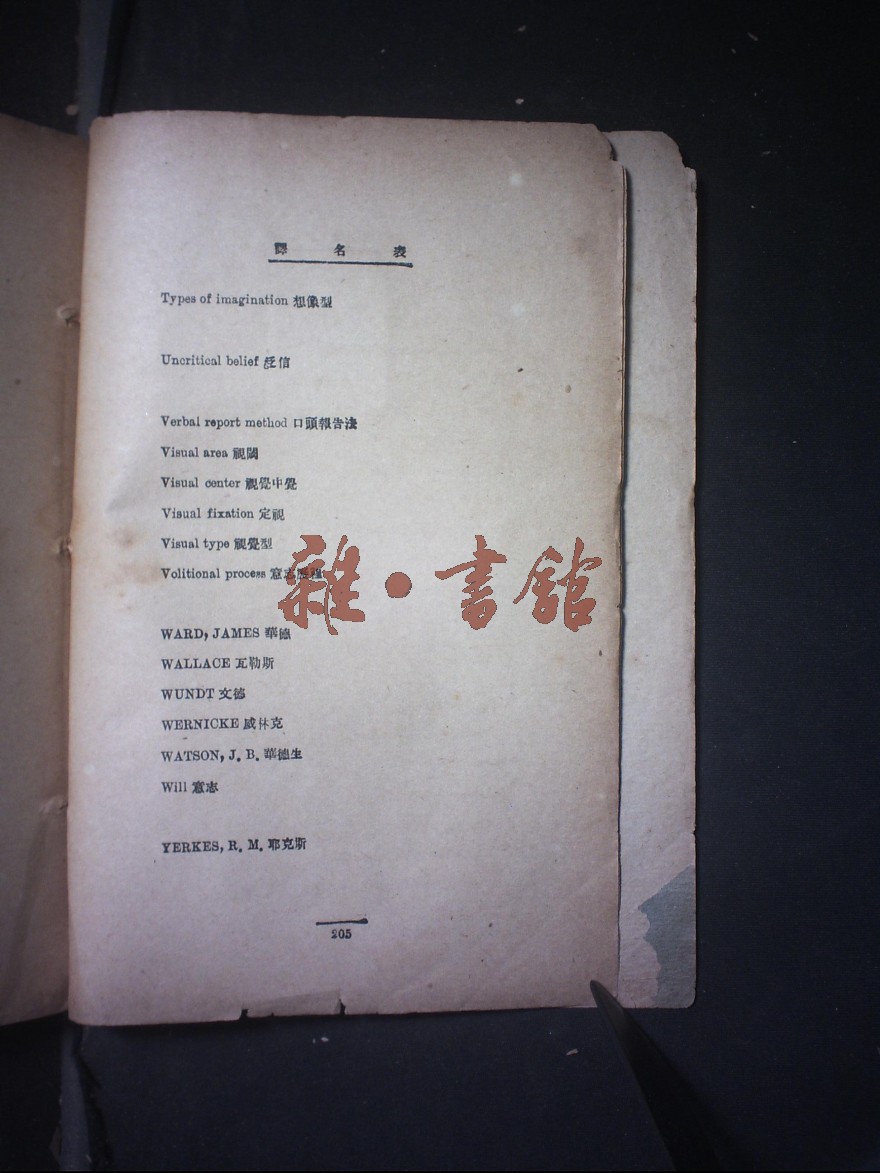 譯名表
Types of imagination 想像型
Uncritical belief 泛信
Verbal report method 口頭報告法
Visual area 視閾
Visual center 視覺中覺
Visual fixation 定視
Visual type 視覺型
Volitional process 意志歷程
雜·書館
WARD, JAMES 華德
WALLACE 瓦勒斯
WUNDT 文德
WERNICKE 威林克
WATSON, J. B. 華德生
Will 意志
YERKES, R. M. 耶克斯
205